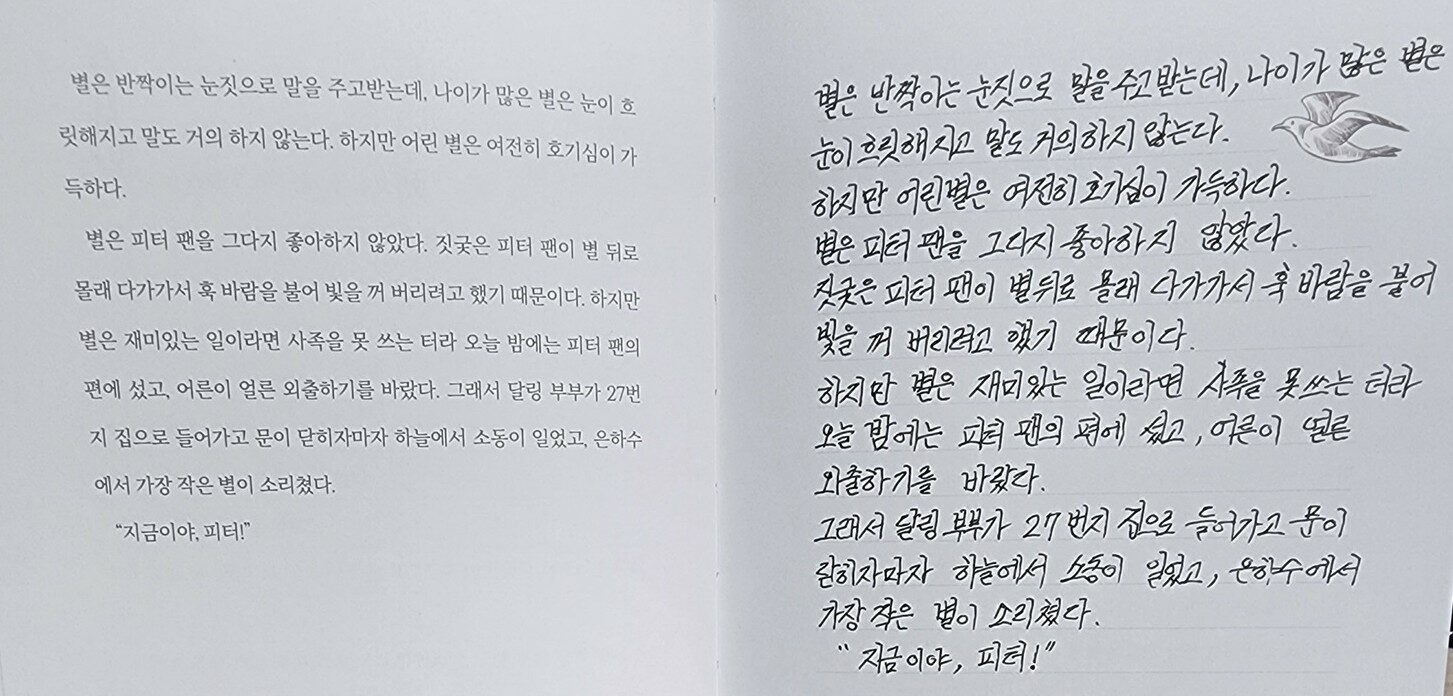 별은 반짝이는 눈짓으로 말을 주고받는데, 나이가 많은 별은 눈이 흐
릿해지고 말도 거의 하지 않는다. 하지만 어린 별은 여전히 호기심이 가
득하다.
별은 피터 팬을 그다지 좋아하지 않았다. 짓궂은 피터 팬이 별 뒤로
몰래 다가가서 훅 바람을 불어 빛을 꺼 버리려고 했기 때문이다. 하지만
별은 재미있는 일이라면 사족을 못 쓰는 터라 오늘 밤에는 피터 팬의
편에 섰고, 어른이 얼른 외출하기를 바랐다. 그래서 달링 부부가 27번
지 집으로 들어가고 문이 닫히자마자 하늘에서 소동이 일었고, 은하수
에서 가장 작은 별이 소리쳤다.
“지금이야, 피터!”
별은 반짝이는 눈짓으로 말을 주고받는데, 나이가 많은 별은
눈이 흐릿해지고 말도 거의 하지 않는다.
하지만 어린별은 여전히 호기심이 가득하다.
별은 피터 팬을 그다지 좋아하지 않았다.
짓궂은 피터 팬이 별뒤로 몰래 다가가서 훅 바람을 불어
빛을 꺼 버리려고 했기 때문이다.
하지만 별은 재미있는 일이라면 사족을 못쓰는 터라
오늘 밤에는 피터 팬의 편에 섰고, 어른이 얼른
외출하기를 바랐다.
그래서 달링 부부가 27번지 집으로 들어가고 문이
닫히자마자 하늘에서 소동이 일었고, 은하수에서
가장 작은 별이 소리쳤다.
“지금이야, 피터!”